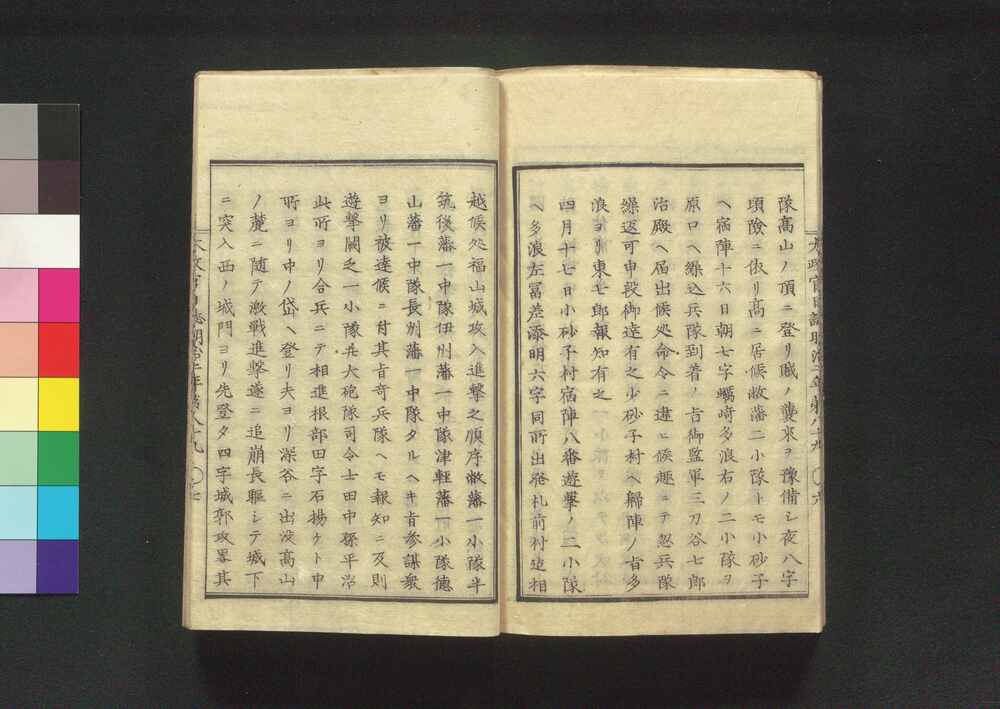 隊高山ノ頂ニ登リ賊ノ襲来ヲ豫備シ夜八字
頃險ニ依リ高ニ居候敝藩二小隊トモ小砂子
ヘ宿陣十六日朝七字蠣崎多浪右ノ二小隊ヲ
原口ヘ繰込兵隊到着ノ旨御監軍三刀谷七郎
治殿ヘ届出候処命令ニ違ヒ候趣ニテ忽兵隊
繰返可申段御達有之小砂子村ヘ歸陣ノ旨多
浪ヨリ東七郎報知有之
四月十七日小砂子村宿陣八番遊撃ノ二小隊
ヘ多浪左冨差添明六字同所出発札前村迠相
太政官日誌明治二年第八十九 〇六
越候処福山城攻入進撃之順序敝藩一小隊半
筑後藩一中隊伊州藩一中隊津軽藩一小隊徳
山藩一中隊長州藩一中隊タルヘキ旨参謀衆
ヨリ被達候ニ付其旨竒兵隊ヘモ報知ニ及則
遊撃闕乏一小隊并大砲隊司令士田中孫平治
此所ヨリ合兵ニテ相進根部田字石揚ケト申
所ヨリ中ノ岱ヘ登リ夫ヨリ深谷ニ出没高山
ノ麓ニ随テ激戦進撃遂ニ追崩長驅シテ城下
ニ突入西ノ城門ヨリ先登夕四字城郭攻畧其
太政官日誌明治二年第八十九 〇七